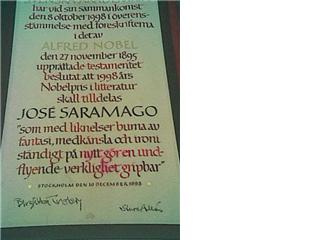 har vid sin sammankomst
den 8 oktober 1998 i överens-
stämmelse med föreskrifterna
i det av
ALFRED NOBEL
den 27 november 1895
upprättade testamentet
beslutat att 1998 års
Nobelpris i litteratur
skall tilldelas
JOSÉ SARAMAGO
"som med liknelser burna av
fantasi, medkänsla och ironi
ständigt på nytt gör en und-
flyende verklighet gripbar"
STOCKHOLM DEN 10 DECEMBER 1998